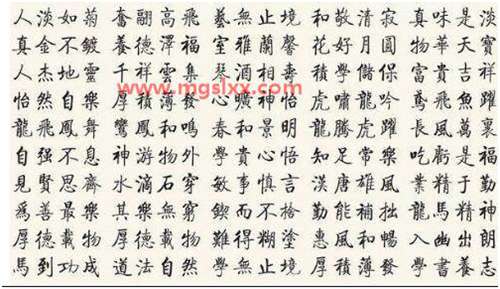 人淡如菊 奮翮高飛 藝無止境 和敬清寂 真味是淡
真金不鍍 養德澤福 室雅蘭馨 花好月圓 物華天寶
人杰地靈 千祥雲集 琴酒相壽 積學儲保 富貴吉祥
www.mgslxx.com
怡然自樂 厚積薄發 心曠神怡 虎嘯龍吟 鳶飛魚躍
龍飛鳳舞 鸞鳳和鳴 春和景明 龍騰虎躍 長風萬裏
自強不息 神游物外 學貴心悟 知足常樂 吃虧是福
見賢思齊 水滴石穿 敏事慎言 漢唐雄風 業精于勤
爲善最樂 其樂無窮 鍥而不捨 勤能補拙 龍馬精神
厚德載物 厚德載物 難得糊塗 惠風和暢 入幽出朗
馬到功成 道法自然 學無止境 厚積薄發 學書養志